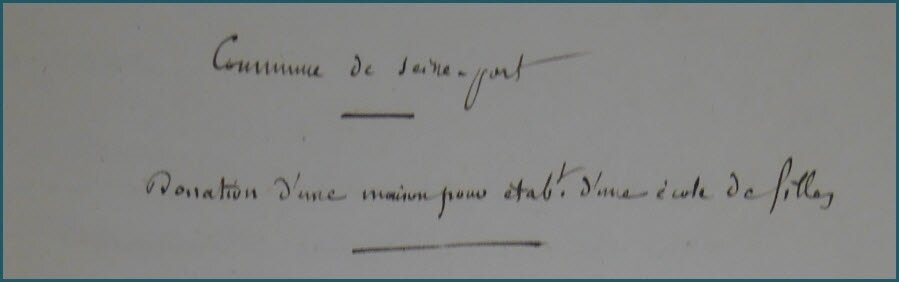 Commune de Seine-port
Donation d'une maison pour étabt. d'une école de filles